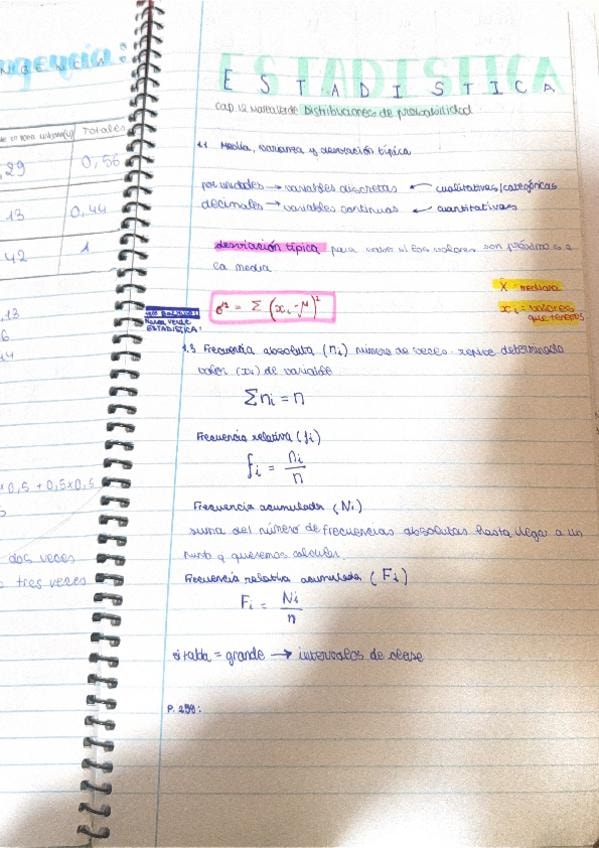 ngencia:
Totales
,29
0,56
,13
0,44
,42
1
,13
6
44
x0,5 + 0,5x0,5
dos veces
tres veces
ESTADISTICA
Cap 12 Marea Verde Distribuciones de probabilidad
1.1 Media, varianza y desviación típica
por unidades → variables discretas ← cualitativas/categóricas
decimales → variables continuas ← cuantitativas
desviación típica para valores son próximos a
la media
σ² = Σ (xi - μ)²
X̄ = mediana
xi = valores
que tenemos
Marea Verde
ESTADÍSTICA:
1.3 Frecuencia absoluta (ni) número de veces repite determinado
valor (xi) de variable
Σ ni = n
Frecuencia relativa (fi)
fi = ni / n
Frecuencia acumulada (Ni)
suma del número de frecuencias absolutas hasta llegar a un
punto q queremos calcular.
Frecuencia relativa acumulada (Fi)
Fi = Ni / n
si tabla = grande → intervalos de clase
P. 259: